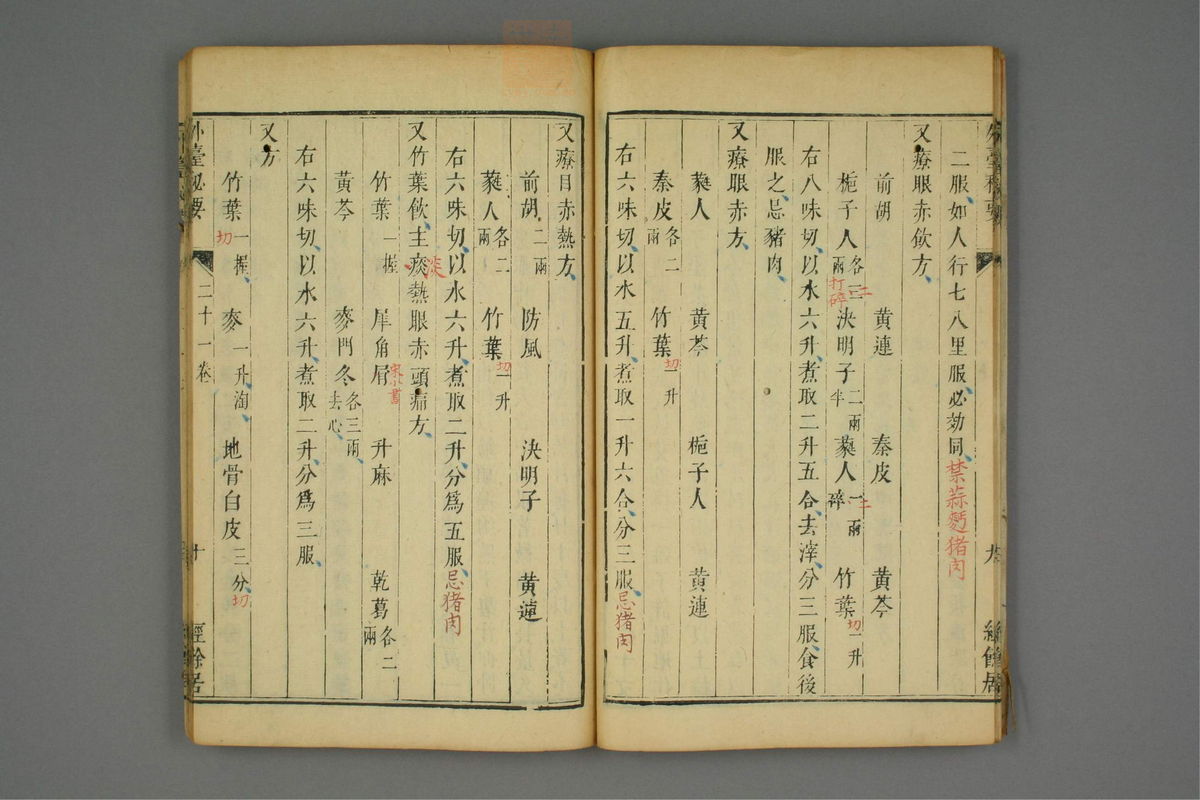 二服、如人行七八里服、必効同、禁蒜麪猪肉
又療眼赤飲方、
前胡 黃連 秦皮 黃芩
梔子人各三兩打碎二 決明子二兩半 蕤人一兩碎二 竹葉切一升
右八味切、以水六升、煮取二升五合、去滓、分三服、食後
服之、忌豬肉、
又療眼赤方、
蕤人 黃芩 梔子人 黃連
秦皮各二兩 竹葉切一升
右六味切、以水五升、煮取一升六合、分三服、忌猪肉
又療目赤熱方、
前胡二兩 防風 決明子 黃連
蕤人各二兩 竹葉切一升
右六味切、以水六升、煮取二升、分為五服、忌猪肉
又竹葉飲、主痰熱眼赤頭痛方、
淡
竹葉一握 犀角屑 升麻 乾葛各二兩
宋小書
黃芩 麥門冬各三兩、去心、
右六味切、以水六升、煮取二升、分為三服、
又方
竹葉一握、切 麥一升淘、 地骨白皮三分、切
外臺秘要 二十一卷 十 經餘居